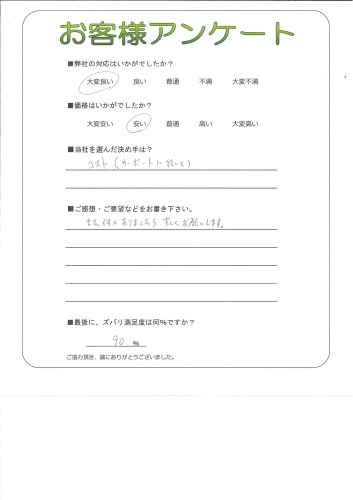 お客様アンケート
■弊社の対応はいかがでしたか?
大変良い 良い 普通 不満 大変不満
■価格はいかがでしたか?
大変安い 安い 普通 高い 大変高い
■当社を選んだ決め手は?
コスト(カーポートに
■ご感想・ご要望などをお書き下さい。
また何かありましたら宜しくお願いします。
■最後に、ズバリ満足度は何%ですか?
90 %
ご協力頂き、誠にありがとうございました。